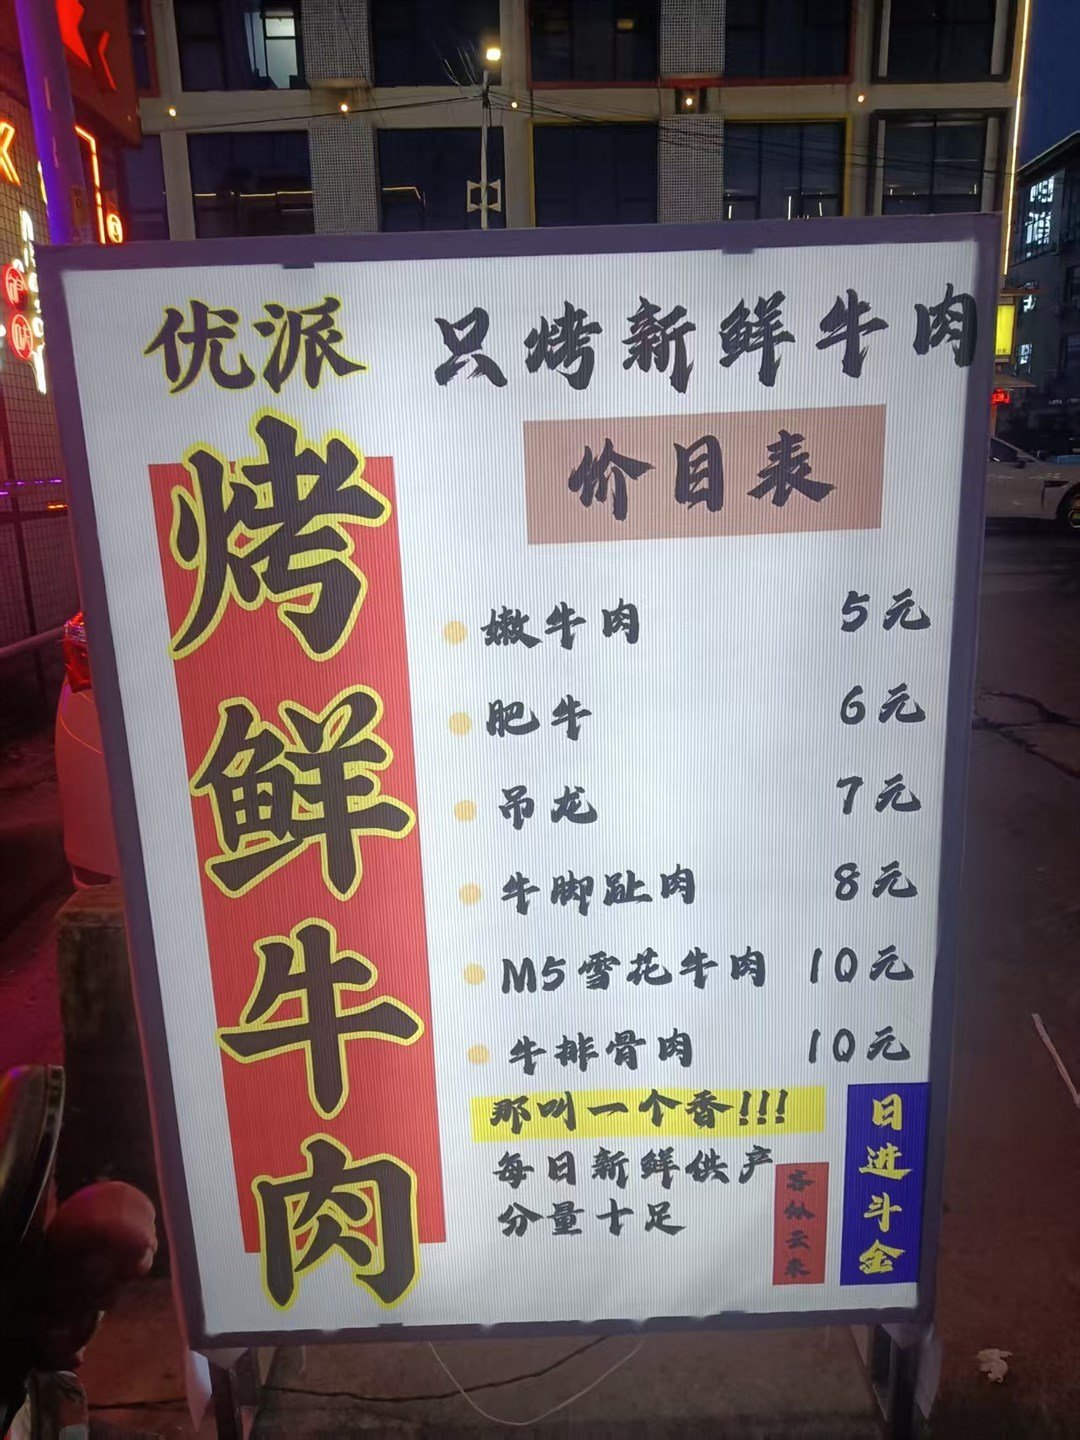 优派
烤鲜牛肉
只烤新鲜牛肉
价目表
嫩牛肉 5元
肥牛 6元
吊龙 7元
牛脚趾肉 8元
M5雪花牛肉 10元
牛排骨肉 10元
那叫一个香!!!
每日新鲜供产
分量十足
客似云来
日进斗金